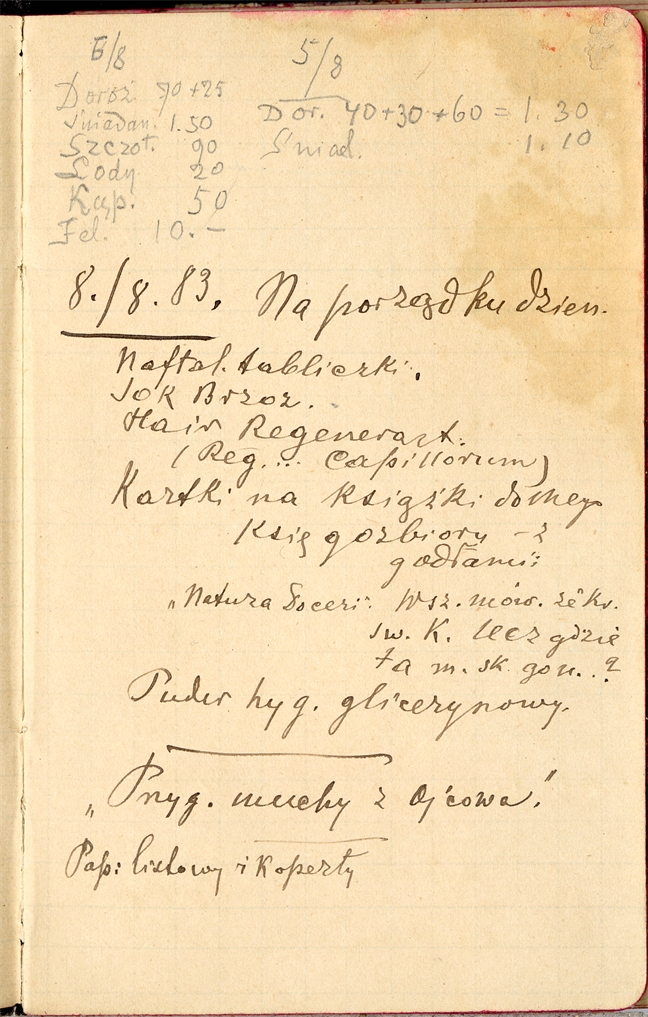 6/8
Doroż. 70+25
Śniadan. 1.50
Szczot. 90
Lody 20
Kąp. 50
Fel. 10.—
5/8
Dor. 40+30+60 = 1.30
Śniad. 1.10
8./8.83. Na porządku dzien.
Naftal. tabliczki.
Sok Brzoz.
Hair Regenerat.
(Reg.... Capillorum)
Kartki na książki domego
Księgozbioru – z
godłami:
„Natura Docet": Wsz. mów. że kr.
św. K. lecz gdzie
ta m. sk. gon..?
Puder hyg. glicerynowy.
„Pryg. muchy z Ojcowa."
Pap: listowy i Koperty